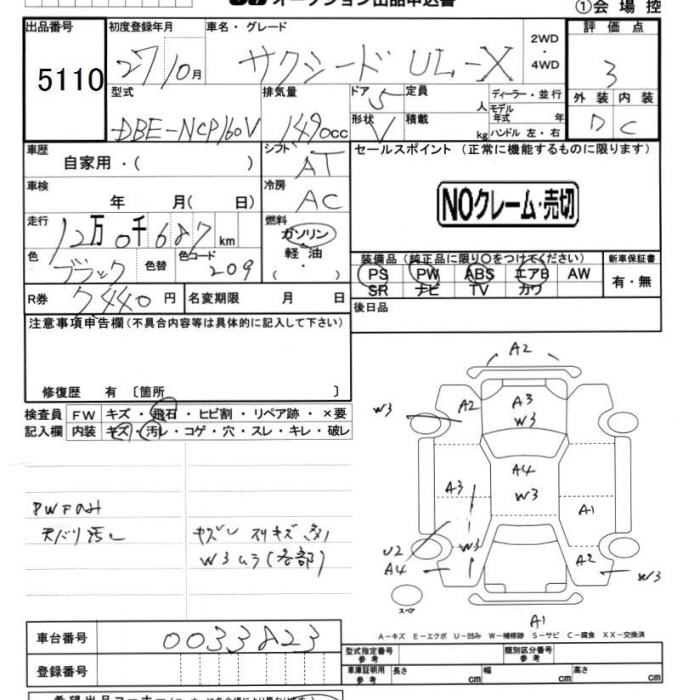 オークション出品申込書
①会場控
出品番号 初度登録年月 車名・グレード 2WD・4WD 評価点
5110 27/10月 サクシード UL-X 3
型式 排気量 ドア 定員 ディーラー・並行 外装 内装
DBE-NCP160V 1490cc 5 人 モデル年式 年 D C
形状 V 積載 kg ハンドル 左・右
車歴 自家用・( ) シフト AT セールスポイント (正常に機能するものに限ります)
車検 年 月( 日) 冷房 AC
NOクレーム・売切
走行 12万0千687km 燃料 ガソリン
軽油・( )
色 ブラック 色替 色コード 209
装備品 (純正品に限り○をつけてください) 新車保証書
PS PW ABS エアB AW 有・無
SR ナビ TV カワ
R券 7440円 名変期限 月 日 後日品
注意事項申告欄 (不具合内容等は具体的に記入して下さい)
修復歴 有 〔箇所 〕
検査員 FW キズ・飛石・ヒビ割・リペア跡・×要
記入欄 内装 キズ・汚レ・コゲ・穴・スレ・キレ・破レ
天バリ汚レ
キズ スリキズ 多
W3ムラ(各部)
A2
W3 A2 A3
W3
A4
A3 W3 A1
U2 W3
A4 A2 W3
スペア
A1
A-キズ E-エクボ U-凹み W-補修跡 S-サビ C-腐食 XX-交換済
車台番号 0033823
型式指定番号 参考 類別区分番号 参考
登録番号
車庫証明用 参考 長さ cm 幅 cm 高さ cm